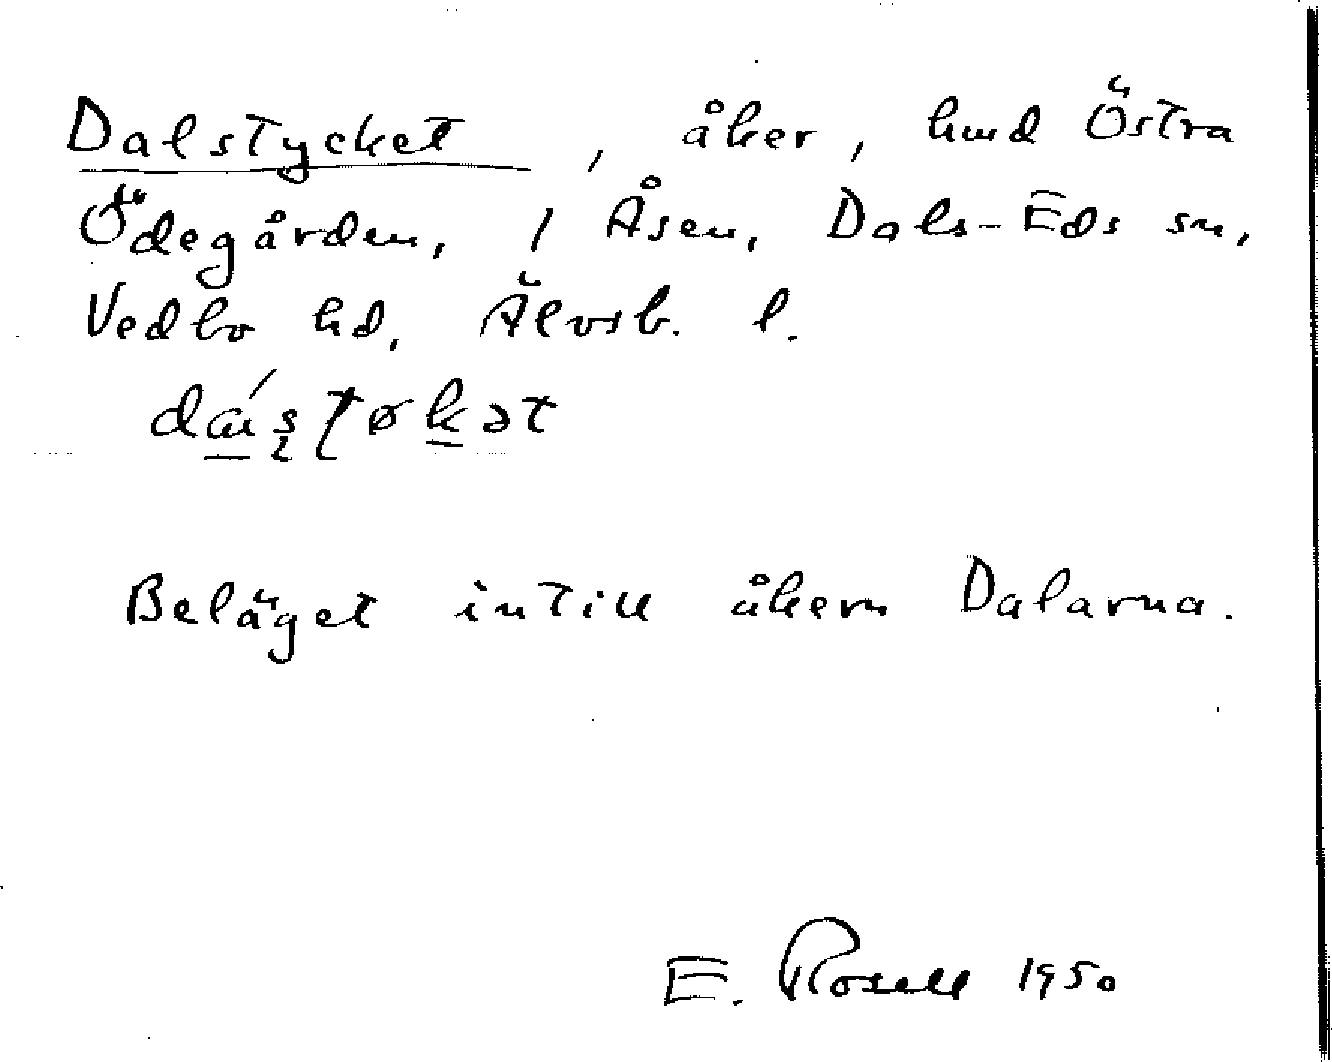 Dalstycket, åker, hmd Östra
Ödegården, 1 Åsen, Dals-Eds sn,
Vedbo hd, Älvsb. l.
Beläget intill åkern Dalarna.
E. Rosell 1950